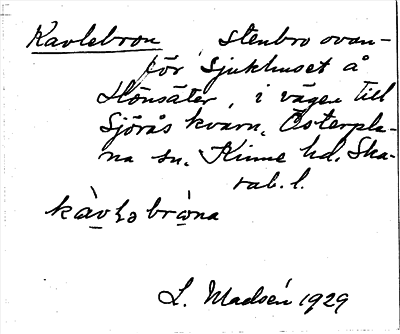 Kavlebron stenbro ovan-
för Sjukhuset å
Hönsäter, i vägen till
Sjörås kvarn. Österpla-
na sn. Kinne hd. Ska-
rab. l.
kàvləbrò̤na
L. Madsén 1929